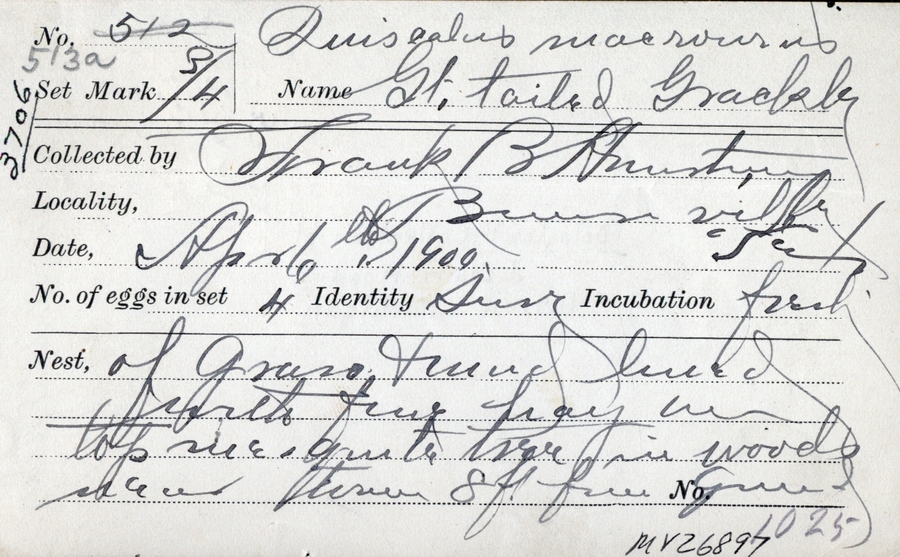 No. 512 Quiscalus macrourus
513a
Set Mark 3/4 Name Gt. tailed Grackle
3706
Collected by Frank B Armstrong
Locality, Brownsville
Date, April 6th 1900. Tex
No. of eggs in set 4 Identity Sure Incubation fresh
Nest, of Grass & mud lined
with fine hay in
top mesquite tree in woods
near town 8 ft from Ground
No. 1025
MVZ6897